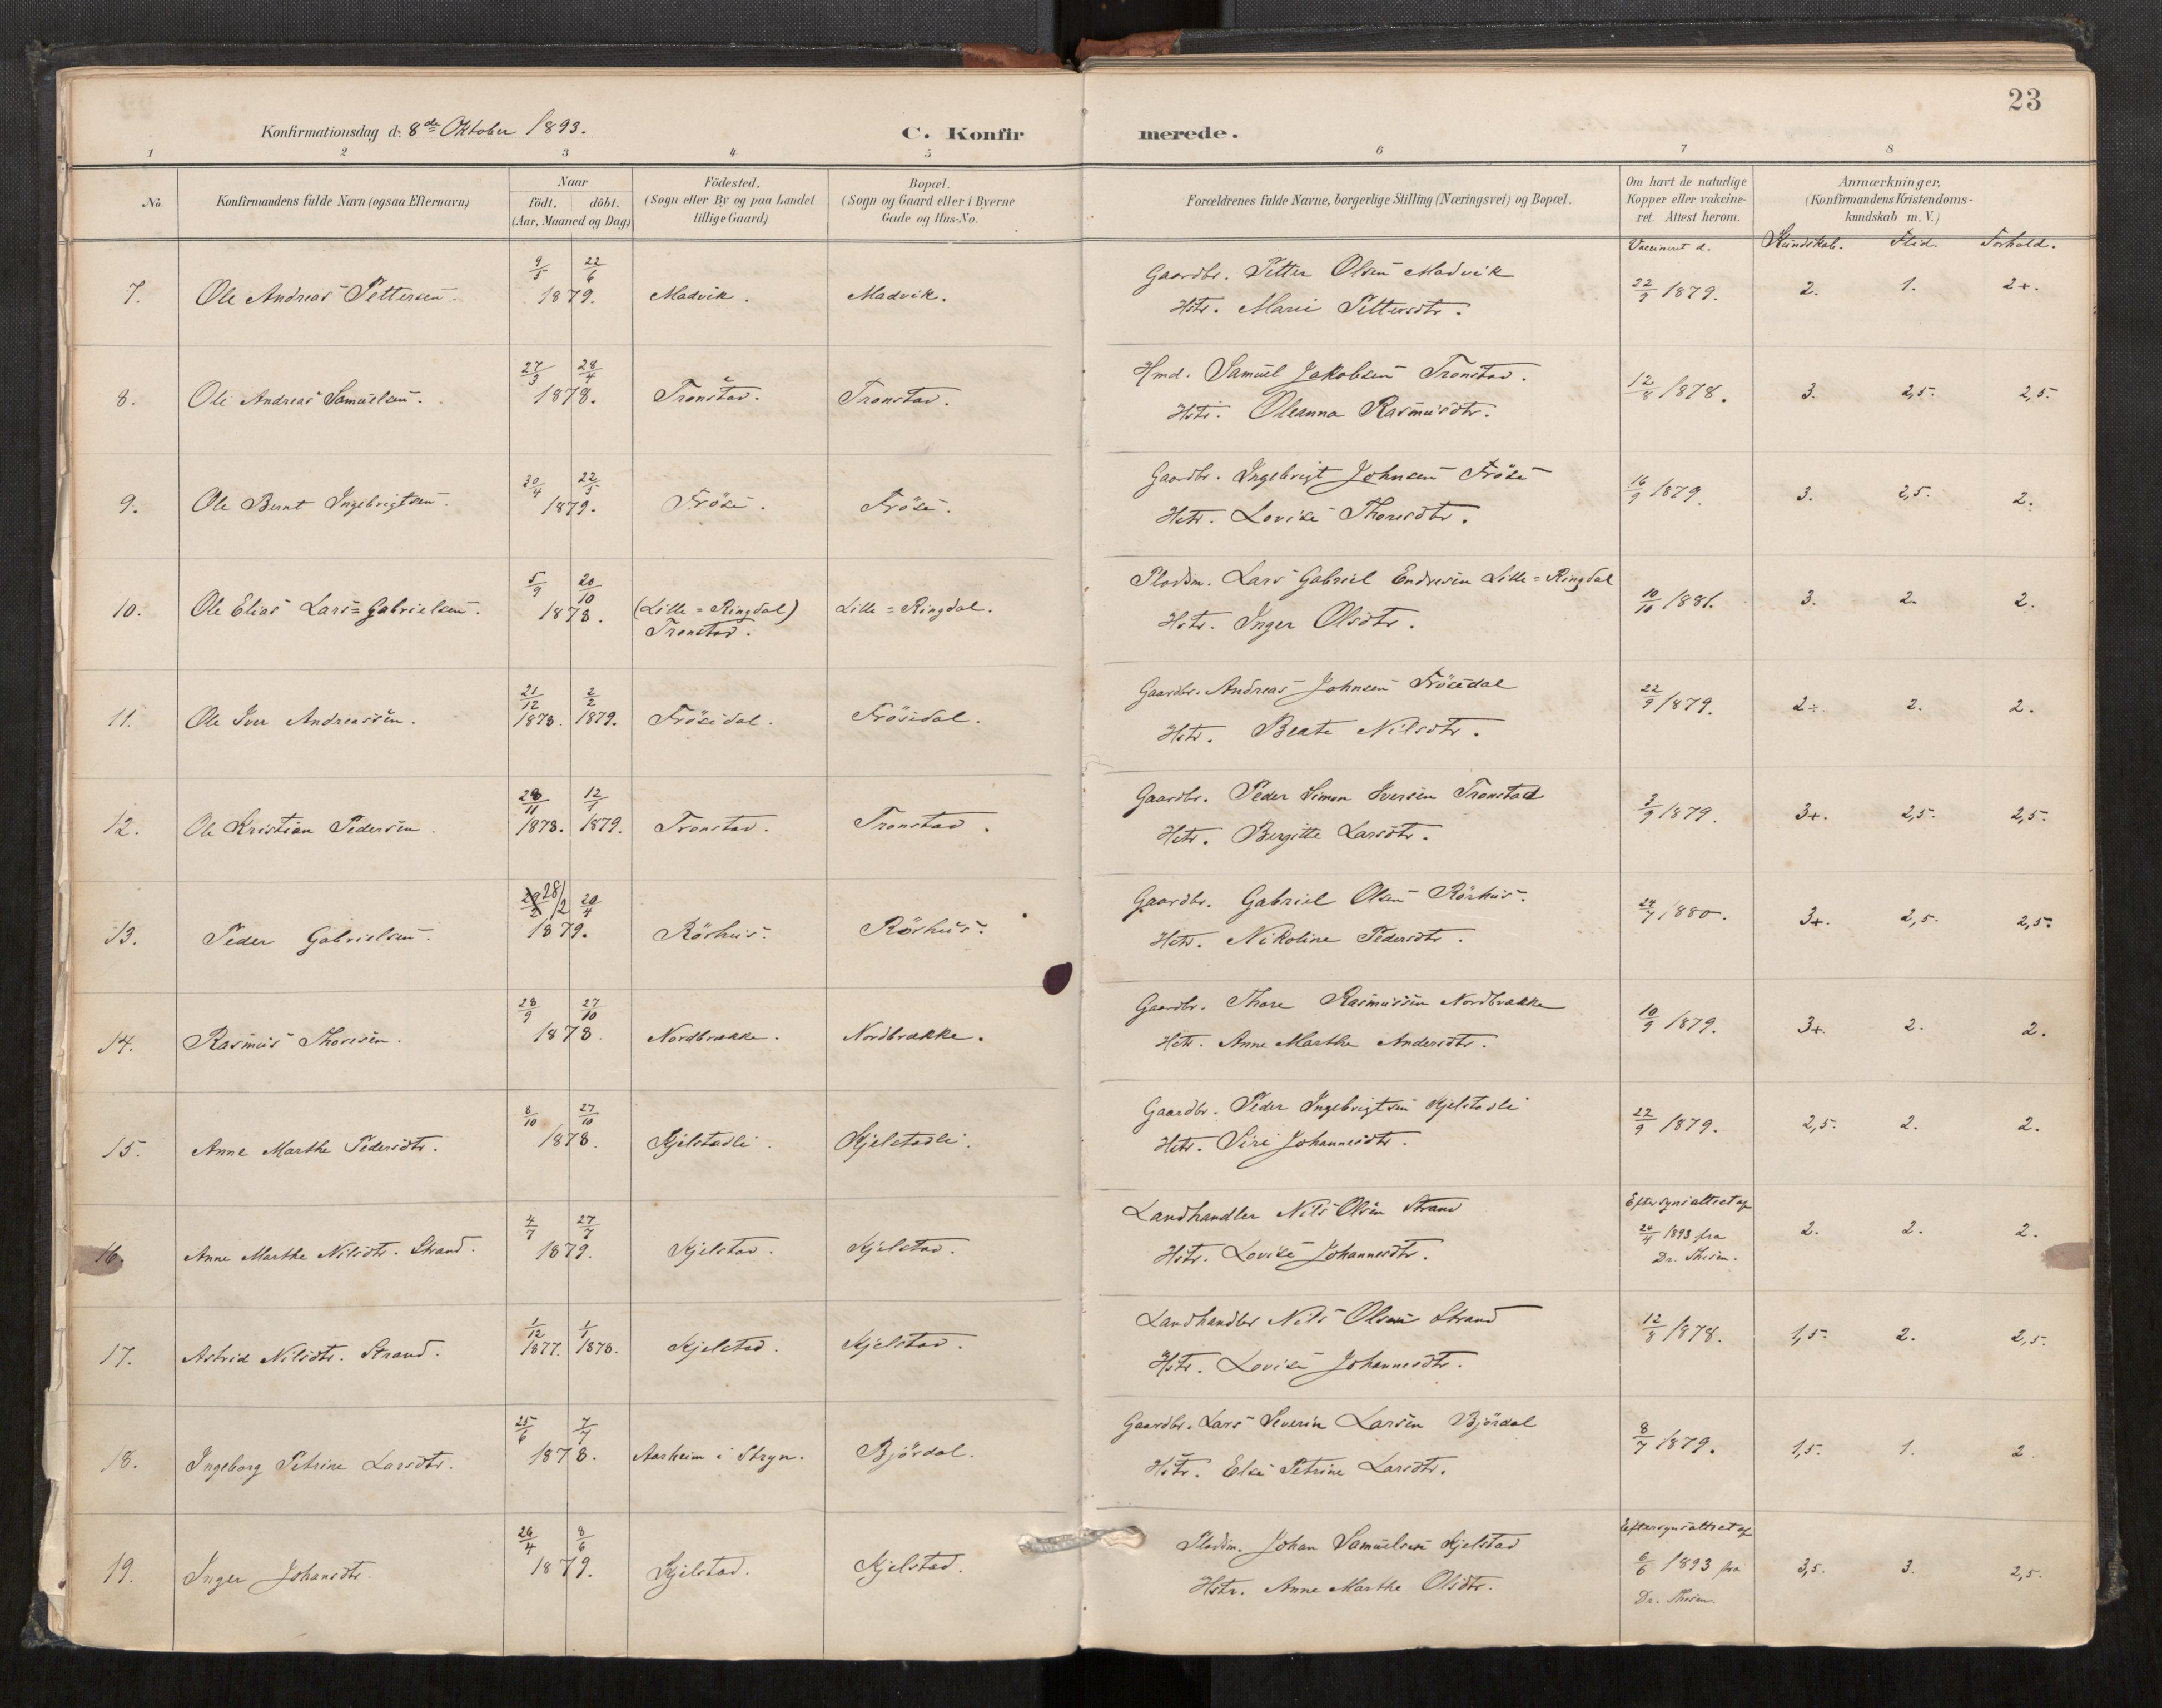 23
Konfirmationsdag d: 8de Oktober 1893.
C. Konfirmerede.
1 2 3 4 5 6 7 8
No. Konfirmandens fulde Navn (ogsaa Efternavn) Naar Födt. döbt. (Aar, Maaned og Dag) Födested. (Sogn eller By og paa Landet tillige Gaard) Bopæl. (Sogn og Gaard eller i Byerne Gade og Hus-No. Forældrenes fulde Navne, borgerlige Stilling (Næringsvei) og Bopæl. Om havt de naturlige Kopper eller vakcineret. Attest herom. Anmærkninger. (Konfirmandens Kristendomskundskab m. V.)
Vaccineret d. Kundskab. Flid. Forhold.
7. Ole Andreas Pettersen. 9/5 22/6 1879. Madvik. Madvik. Gaardbr. Petter Olsen Madvik 22/9 1879. 2. 1. 2+.
Hstr. Marie Pettersdtr.
8. Ole Andreas Samuelsen. 27/3 28/4 1878. Tronstad. Tronstad. Hmd. Samuel Jakobsen Tronstad. 12/8 1878. 3. 2,5. 2,5.
Hstr. Oleanna Rasmusdtr.
9. Ole Bernt Ingebrigtsen. 30/4 22/5 1879. Fröse. Fröse. Gaardbr. Ingebrigt Johnsen Fröse 16/9 1879. 3. 2,5. 2.
Hstr. Lovise Thoresdtr.
10. Ole Elias Lars=Gabrielsen. 5/9 20/10 1878. (Lille=Ringdal) Tronstad. Lille=Ringdal. Pladsm. Lars Gabriel Endresen Lille=Ringdal 10/10 1881. 3. 2. 2.
Hstr. Inger Olsdtr.
11. Ole Iver Andreassen. 21/12 1878. 2/2 1879. Frösedal. Frösedal. Gaardbr. Andreas Johnsen Frösedal 22/9 1879. 2÷. 2. 2.
Hstr. Beate Nilsdtr.
12. Ole Kristian Pedersen. 28/11 1878. 12/1 1879. Tronstad. Tronstad. Gaardbr. Peder Simon Iversen Tronstad 3/9 1879. 3+. 2,5. 2,5.
Hstr. Bergitte Larsdtr.
13. Peder Gabrielsen. 28/2 20/4 1879. Rörhus. Rörhus. Gaardbr. Gabriel Olsen Rörhus. 24/7 1880. 3+. 2,5. 2,5.
Hstr. Nikoline Pedersdtr.
14. Rasmus Thoresen. 28/9 27/10 1878. Nordbrække. Nordbrække. Gaardbr. Thore Rasmussen Nordbrække 10/9 1879. 3+. 2. 2.
Hstr. Anne Marthe Andersdtr.
15. Anne Marthe Pedersdtr. 8/10 27/10 1878. Kjelstadli. Kjelstadli. Gaardbr. Peder Ingebrigtsen Kjelstadli 22/9 1879. 2,5. 2. 2.
Hstr. Siri Johannesdtr.
16. Anne Marthe Nilsdtr. Strand. 4/7 27/7 1879. Kjelstad. Kjelstad. Landhandler Nils Olsen Strand Eftersynsattest af 24/4 1893 fra Dr. Thesen. 2. 2. 2.
Hstr. Lovise Johannesdtr.
17. Astrid Nilsdtr. Strand. 1/12 1877. 1/1 1878. Kjelstad. Kjelstad. Landhandler Nils Olsen Strand 12/8 1878. 1,5. 2. 2,5.
Hstr. Lovise Johannesdtr.
18. Ingeborg Petrine Larsdtr. 25/6 7/7 1878. Aarheim i Stryn. Björdal. Gaardbr. Lars Severin Larsen Björdal 8/7 1879. 1,5. 1. 2.
Hstr. Else Petrine Larsdtr.
19. Inger Johansdtr. 26/4 8/6 1879. Kjelstad. Kjelstad. Pladsm. Johan Samuelsen Kjelstad Eftersynsattest af 6/6 1893 fra Dr. Thesen. 3,5. 3. 2,5.
Hstr. Anne Marthe Olsdtr.